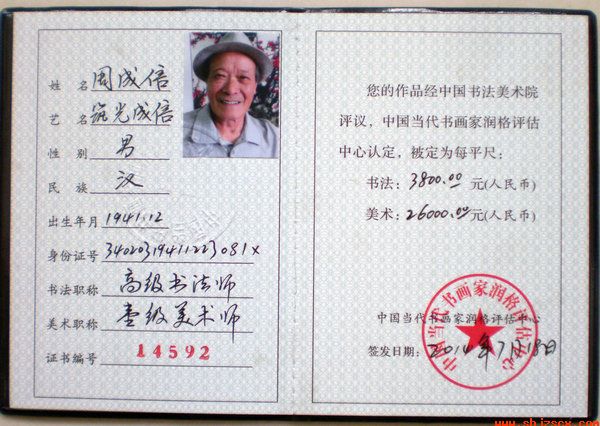 姓 名 周成倍
艺 名 羌光成倍
性 别 男
民 族 汉
出生年月 1941.12
身份证号 34020319411223081X
书法职称 高级书法师
美术职称 壹级美术师
证书编号 14592
您的作品经中国书法美术院
评议,中国当代书画家润格评估
中心认定,被定为每平尺:
书法:3800.00 元(人民币)
美术:26000.00 元(人民币)
中国当代书画家润格评估中心
签发日期:2014年7月18日
中国当代书画家润格评估中心
www.shjzscx.com